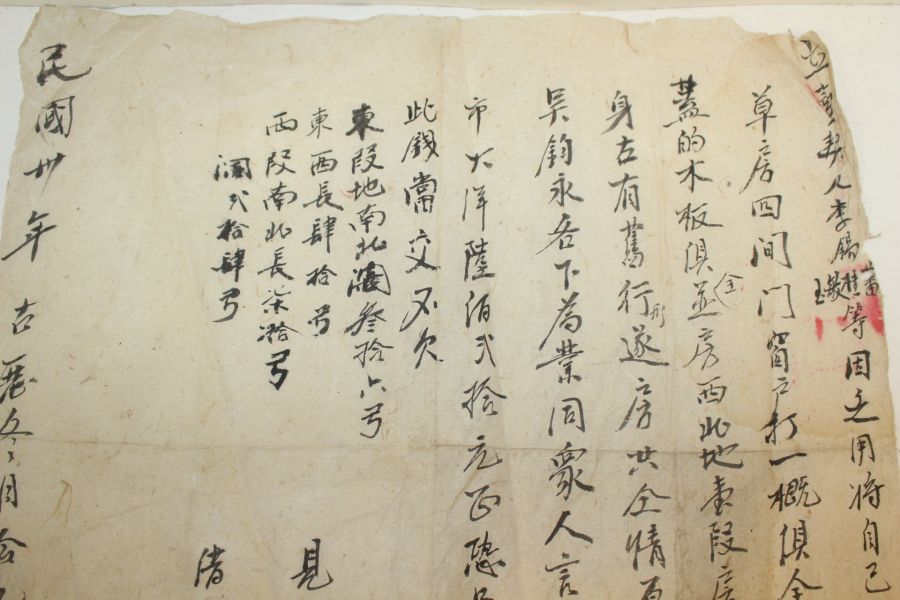 立賣契人李錫桂等因乏用將自己
草房四间門窗戶打一概俱全
蓋的木板俱全並房西北地東段房
身古有舊行形遂房共仝情
吴鈞永名下為業同衆人言
市大洋陸佰弍拾元正恐
此錢當交不欠
東段地南北濶叁拾六弓
東西長肆拾弓
西段南北長柒拾弓
濶弍拾肆弓
見
清
民國卅年古曆冬月